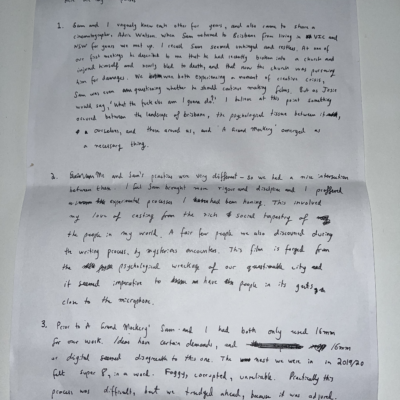 1. Sam and I vaguely knew each other for years, and also came to share a
cinematographer, Adric Watson. When Sam returned to Brisbane from living in VIC and
NSW for years we met up. I recall Sam seemed unhinged and restless. At one of
our first meetings he described to me that he had recently broken into a church and
injured himself and nearly bled to death, and that now the church was pursuing
him for damages. We were both experiencing a moment of creative crisis,
Sam was even questioning whether to should continue making films. But as Josie
would say, 'what the fuck else am I gonna do?' I believe at this point something
occured between the landscape of brisbane, the psychological tissue between it,
ourselves, and those around us, and A Grand Mockery emerged as
a necessary thing.
2. Me and Sam's practice were very different - so we had a nice intersection
between them. I felt Sam brought more rigour and discipline and I proffered
experimental processes I had been honing. This involved
my love of casting from the rich tapestry of
the people in my world. A fair few people we also discovered during
the writing process, by mysterious encounters. This film is forged from
the psychological wreckage of our city and
it seemed imperative to have people in its guts
close to the microphone.
3. Prior to A Grand Mockery Sam and I had both only used 16mm
for our work. Ideas have certain demands, and 16mm
or digital seemed disingenuous to this one. The mess we were in in 2019/20
felt super 8, in a word. Foggy, corrupted, unreliable. Practically this
process was difficult, but we trudged ahead, because it was absurd.